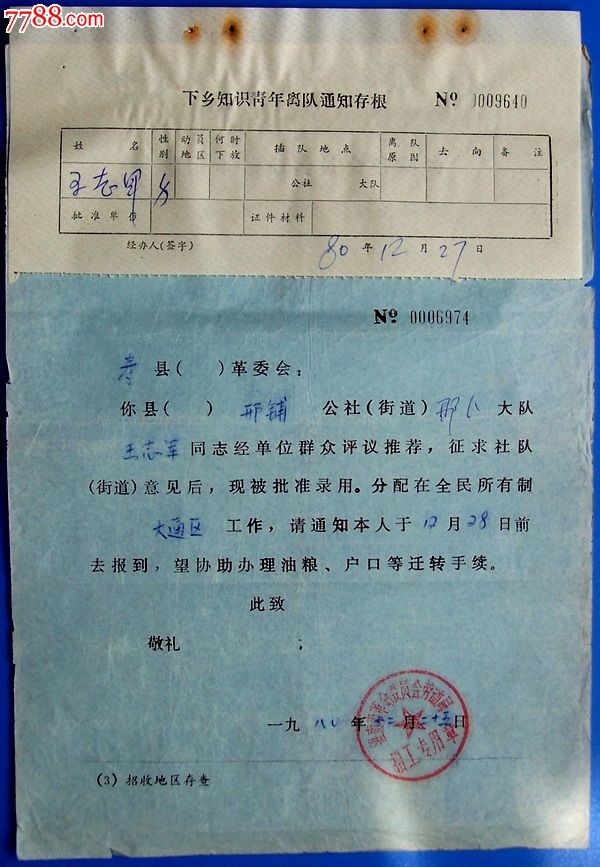 7788.com
下乡知识青年离队通知存根 № 0009640
姓名 性别 动员地区 何时下放 插队地点 离队原因 去向 备注
王志军 男 公社 大队
批准单位 证件材料
经办人(签字) 80年12月27日
№ 0006974
寿县( )革委会：
你县( ) 邢铺 公社(街道) 邢 大队
王志军同志经单位群众评议推荐，征求社队
(街道)意见后，现被批准录用。分配在全民所有制
大通区 工作，请通知本人于12月28日前
去报到，望协助办理油粮、户口等迁转手续。
此致
敬礼
一九八〇年十二月二十五日
淮南市革命委员会劳动局
招工专用章
(3)招收地区存查